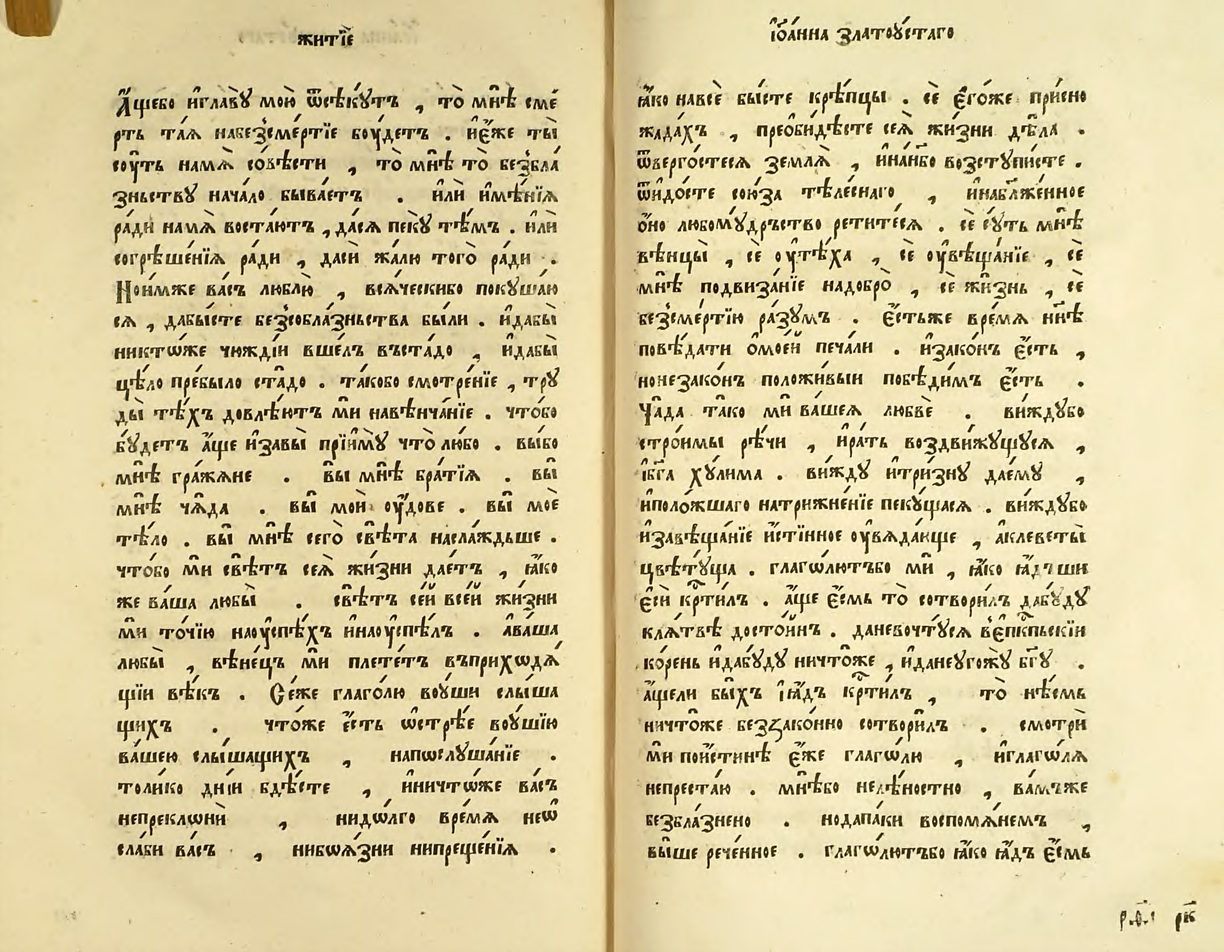 житїе
А҆щебо и҆главꙋ̀ мою̀ ѿсѣкꙋ́тъ , то̀ мнѣ̀ сме́
рть таѧ̀ набезсме́ртїе боу́детъ . и҆е҆́же ты̀
соу́ть намѧ̀ со́вѣсти , то̀ мнѣ̀ то̀ безбла
зньствꙋ нача́ло быва́етъ . и҆лѝ и҆мѣ́нїѧ
ра́ди намѧ̀ воста́ютъ , да́сѧ пекꙋ̀ тѣ́мъ . и҆лѝ
согрѣше́нїѧ ра́ди , да́си жа́лю того̀ ра́ди .
Нои́мже ва́съ люблю̀ , всѧ́ческибо покꙋша́ю
сѧ , дабы́сте безсобла́зньства бы́ли . и҆дабы̀
никтѡ́же чюждїи вше́лъ въста́до , и҆дабы̀
цѣ́ло пребы́ло ста́до . тако́бо смотре́нїе , трꙋ
ды̀ тѣ́хъ довлѣ́ютъ мѝ навѣнча́нїе . чтобо
бꙋ́детъ а҆́ще и҆завы̀ прїимꙋ̀ что́ любо . вы́бо
мнѣ̀ гра́жѧне . вы̀ мнѣ̀ бра́тїѧ . вы̀
мнѣ̀ чѧ́да . вы̀ моѝ оу́дове . вы̀ моѐ
тѣ́ло . вы̀ мнѣ̀ сего̀ свѣ́та наслажьше .
что́бо мѝ свѣ́тъ сеѧ̀ жи́зни дае́тъ , ꙗ҆́ко
же ва́ша любы̀ . свѣ́тъ се́й все́й жи́зни
мѝ то́чїю наоу́спѣхъ и҆наоу́спѣлъ . а҆ва́ша
любы̀ , вѣне́цъ мѝ плете́тъ въприхѡдѧ́
щїи вѣ́къ . Се́же глаго́лю воу́ши слы́ша
щихъ . что́же е҆́сть ѡ҆стрѣ́е воу́шїю
ва́шею слы́шащихъ , напѡслꙋша́нїе .
толи́ко дні́и бдѣ́сте , и҆ничто́же ва́съ
непреклѡнѝ , нидѡ́лго вре́мѧ неѡ
слабѝ ва́съ , нибѡѧ́зни нипреще́нїѧ .
і҆ѡа́нна златоꙋ́стаго
ꙗ҆́ко навсѐ бы́сте крѣ́пцы . сѐ е҆го́же при́сно
жада́хъ , преоби́дѣсте сеѧ̀ жи́зни дѣ́ла .
ѿверго́стесѧ землѧ̀ , и҆нанбо возстꙋ́писте .
ѿидо́сте сою́за тѣле́снаго , и҆наблаже́нное
о҆́но любомꙋ́дрьство ретитесѧ . сѐ сꙋ́ть мнѣ̀
вѣнцы̀ , сѐ оутѣ́ха , сѐ оувѣща́нїе , сѐ
мнѣ̀ подвиза́нїе надобро̀ , сѐ жи́знь , сѐ
безсме́ртїю ра́зꙋмъ . е҆́стьже вре́мѧ нн҃ѣ
повѣ́дати о҆мое́й печа́ли . и҆зако́нъ е҆́сть ,
нонезако́нъ положи́выи побѣди́мъ е҆́сть .
Ча́да та́ко мѝ ва́шеѧ любвѐ . ви́ждꙋбо
стро́имы рѣ́чи , и҆ра́ть воздви́жꙋщꙋсѧ ,
і҆бг҃а хꙋли́ма . ви́ждꙋ и҆три́знꙋ дае́мꙋ ,
иполо́жшаго натрижне́нїе пекꙋ́щасѧ . ви́ждꙋбо
и҆завѣща́нїе и҆́стїнное оувѧда́юще , а҆клеветы̀
цвѣтꙋ́ща . глаго́лютъбо мѝ , ꙗ҆́ко ꙗ҆́дъши
е҆сѝ кр҃тилъ . а҆́ще е҆́смь то̀ сотвори́лъ да́бꙋдꙋ
клѧ́твѣ досто́йнъ . даневочтꙋсѧ въе҆пⷭ҇кпьскїи
ко́рень и҆да́бꙋдꙋ ничто́же , и҆данеꙋго́жꙋ бг҃ꙋ .
а҆́щели бы́хъ і҆ꙗ҆́дъ кр҃ти́лъ , то̀ нѣ́смь
ничто́же беззако́нно сотвори́лъ . смотрѝ
мѝ пои́стинѣ е҆́же глагѡ́лю , и҆глагѡ́лѧ
непреста́ю . мнѣ́бо нелѣ́ностно , ва́мъже
безбла́знено . нодапа́ки воспомѧ́немъ ,
вы́ше рече́нное . глагѡ́лютъбо ꙗ҆́ко ꙗ҆́дъ е҆́смь
рк҃